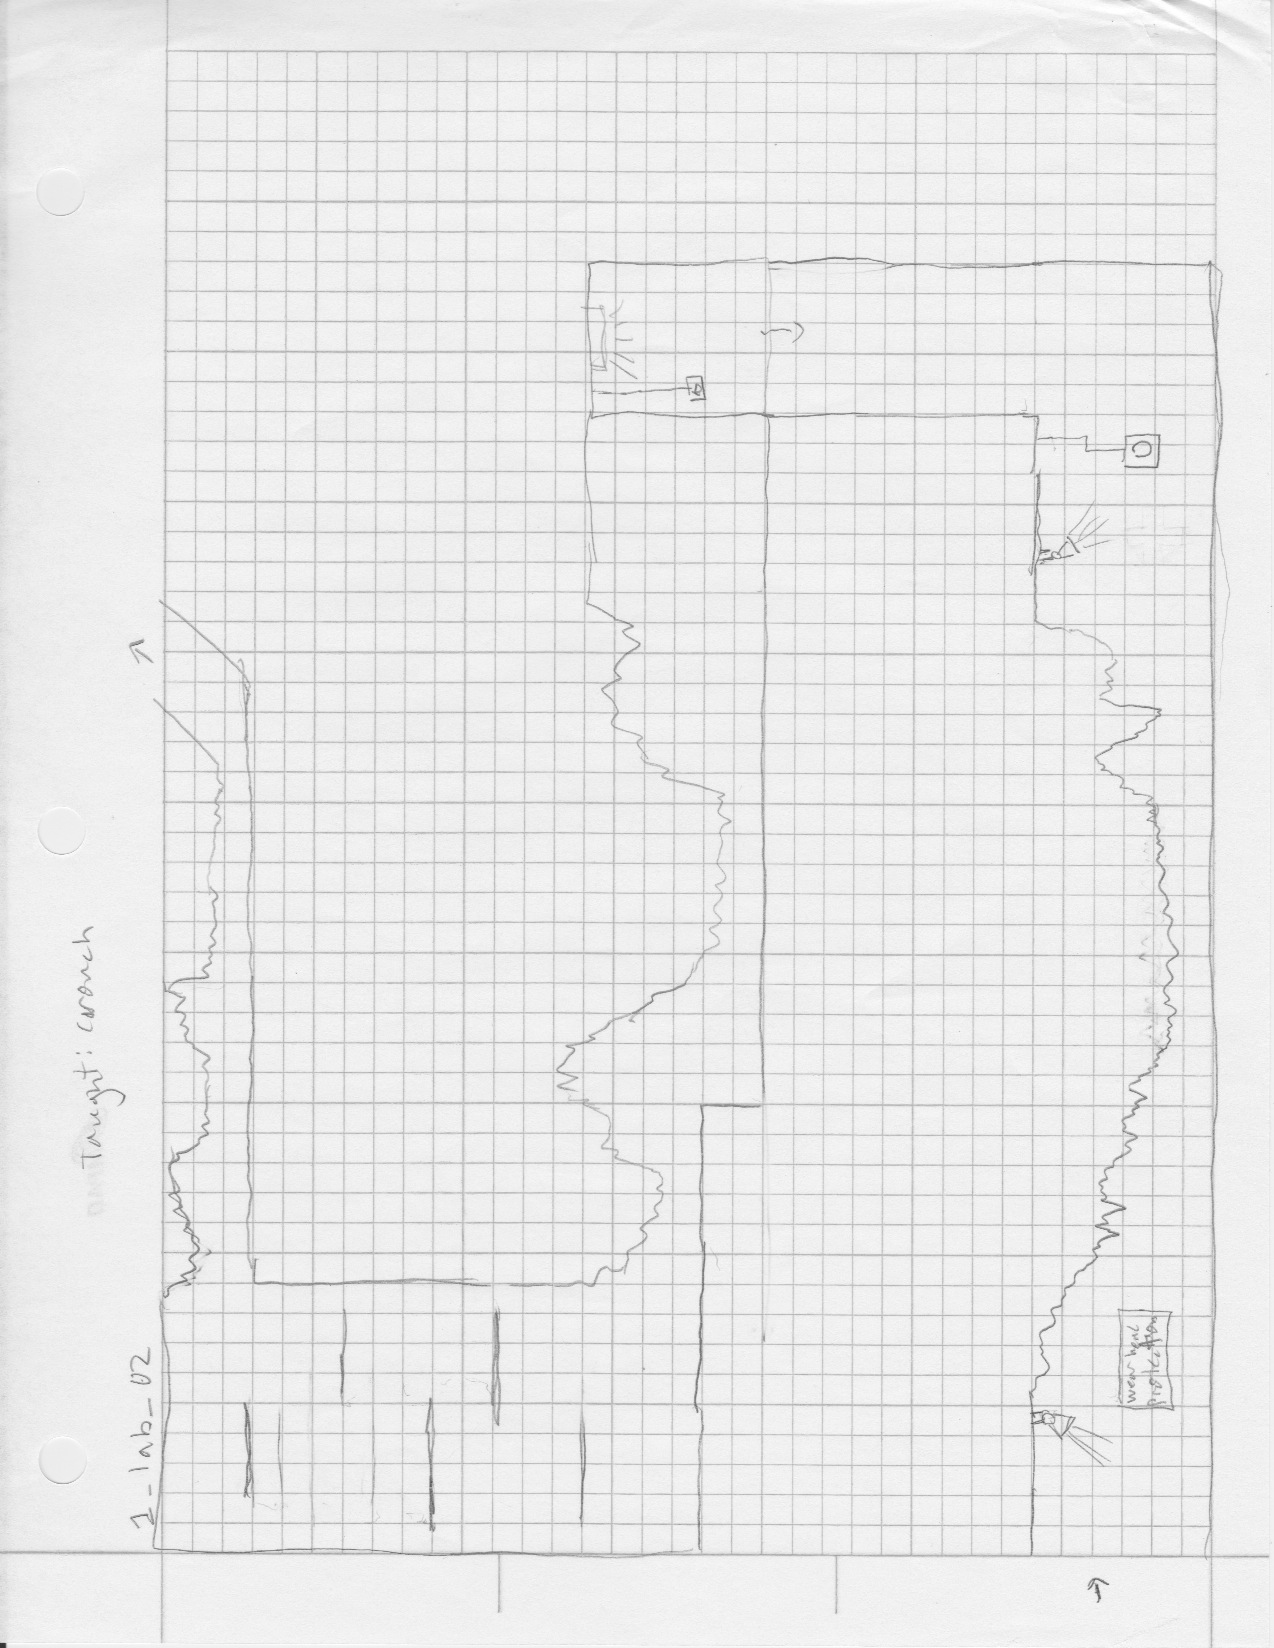 Taught: crouch
1_lab_02
wear head
protection